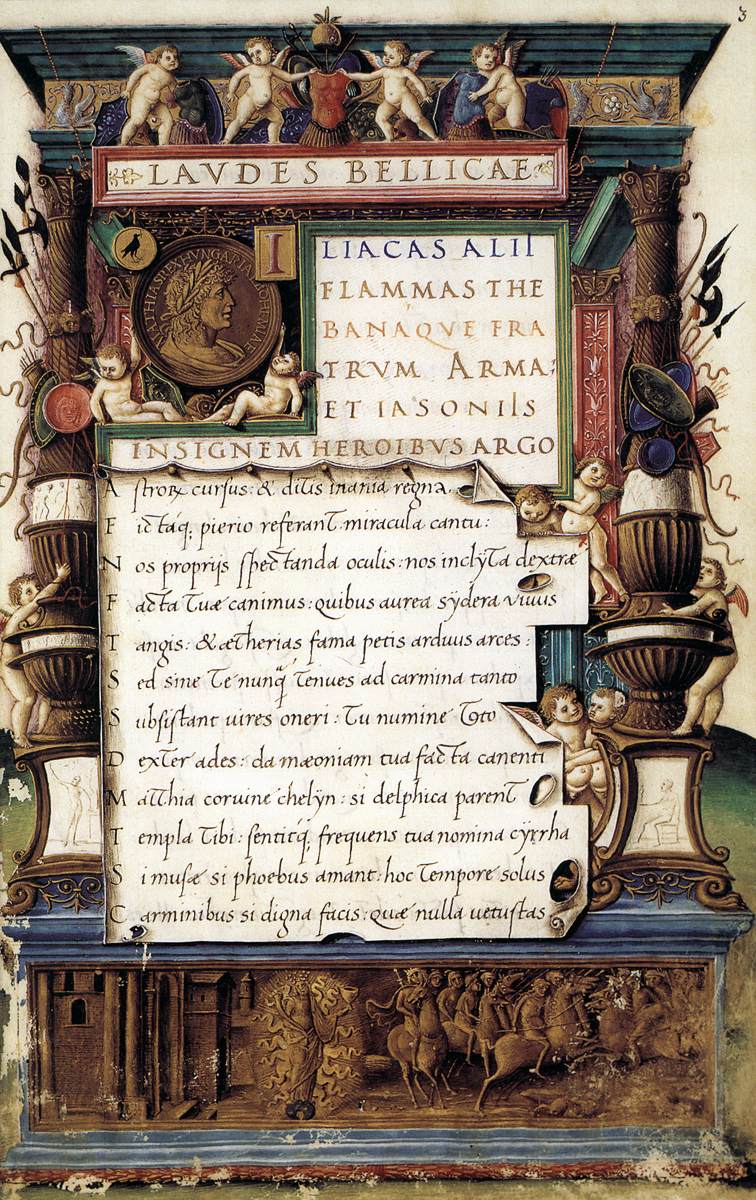 3
LAVDES BELLICAE
MATHIAS REX HVNGARIAE BOHEMIAE
I
LIACAS ALII
FLAMMAS THE
BANAQVE FRA
TRVM ARMA:
ET IASONIIS
INSIGNEM HEROIBVS ARGO
Astrorꝝ cursus: & ditis inania regna.
Fictaq; pierio referant miracula cantu:
Nos proprijs spectanda oculis: nos inclyta dextræ
Facta tuæ canimus: quibus aurea sydera viuus
Tangis: & ætherias fama petis arduus arces:
Sed sine te nunq̃ tenues ad carmina tanto
Subsistant uires oneri: Tu numine toto
Dexter ades: da mæoniam tua facta canenti
Matthia coruine chelyn: si delphica parent
Templa tibi: sentitq; frequens tua nomina cyrrha
Si musæ si phoebus amant: hoc tempore solus
Carminibus si digna facis: quæ nulla uetustas